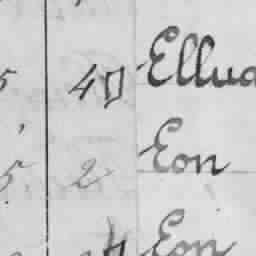 5 40 Ellua
5 2 Eon
4 Eon